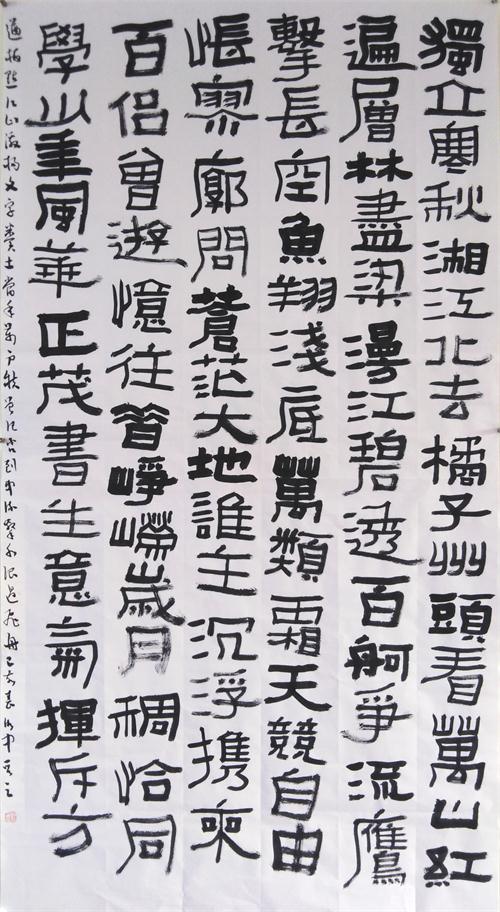 獨立寒秋湘江北去橘子州頭看萬山紅
遍層林盡染漫江碧透百舸爭流鷹
擊長空魚翔淺底萬類霜天競自由
悵寥廓問蒼茫大地誰主沉浮携來
百侶曾遊憶往昔崢嶸歲月稠恰同
學少年風華正茂書生意氣揮斥方
遒指點江山激揚文字糞土當年萬户侯曾记否到中流擊水浪遏飛舟己亥春